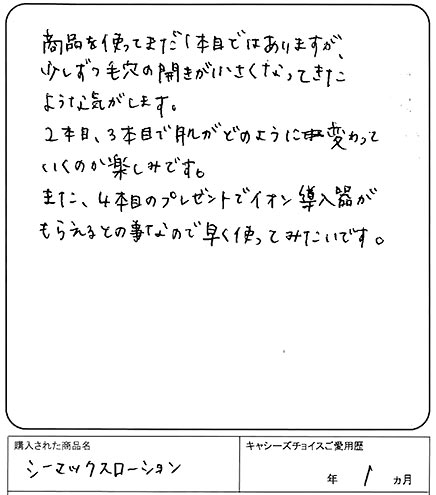 商品を使ってまだ1本目ではありますが、
少しずつ毛穴の開きが小さくなってきた
ような気がします。
2本目、3本目で肌がどのように変わって
いくのか楽しみです。
また、4本目のプレゼントでイオン導入器が
もらえるとの事なので早く使ってみたいです。
購入された商品名
キャシーズチョイスご愛用歴
シーマックスローション
年 1 ヵ月